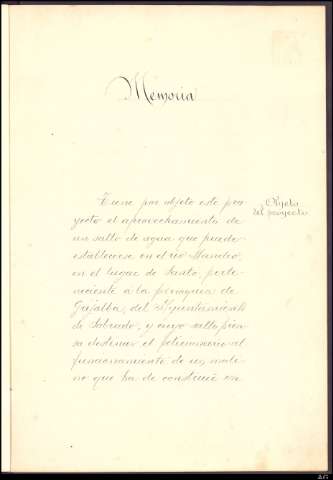 Memoria
Objeto
del proyecto
Tiene por objeto este pro
yecto el aprovechamiento de
un salto de agua que puede
establecerse en el río Mandeo,
en el lugar de Santo, perte-
neciente a la parroquia de
Grijalba, del Ayuntamiento
de Sobrado, y cuyo salto pien
sa destinar el peticionario al
funcionamiento de un moli-
no que ha de construir en